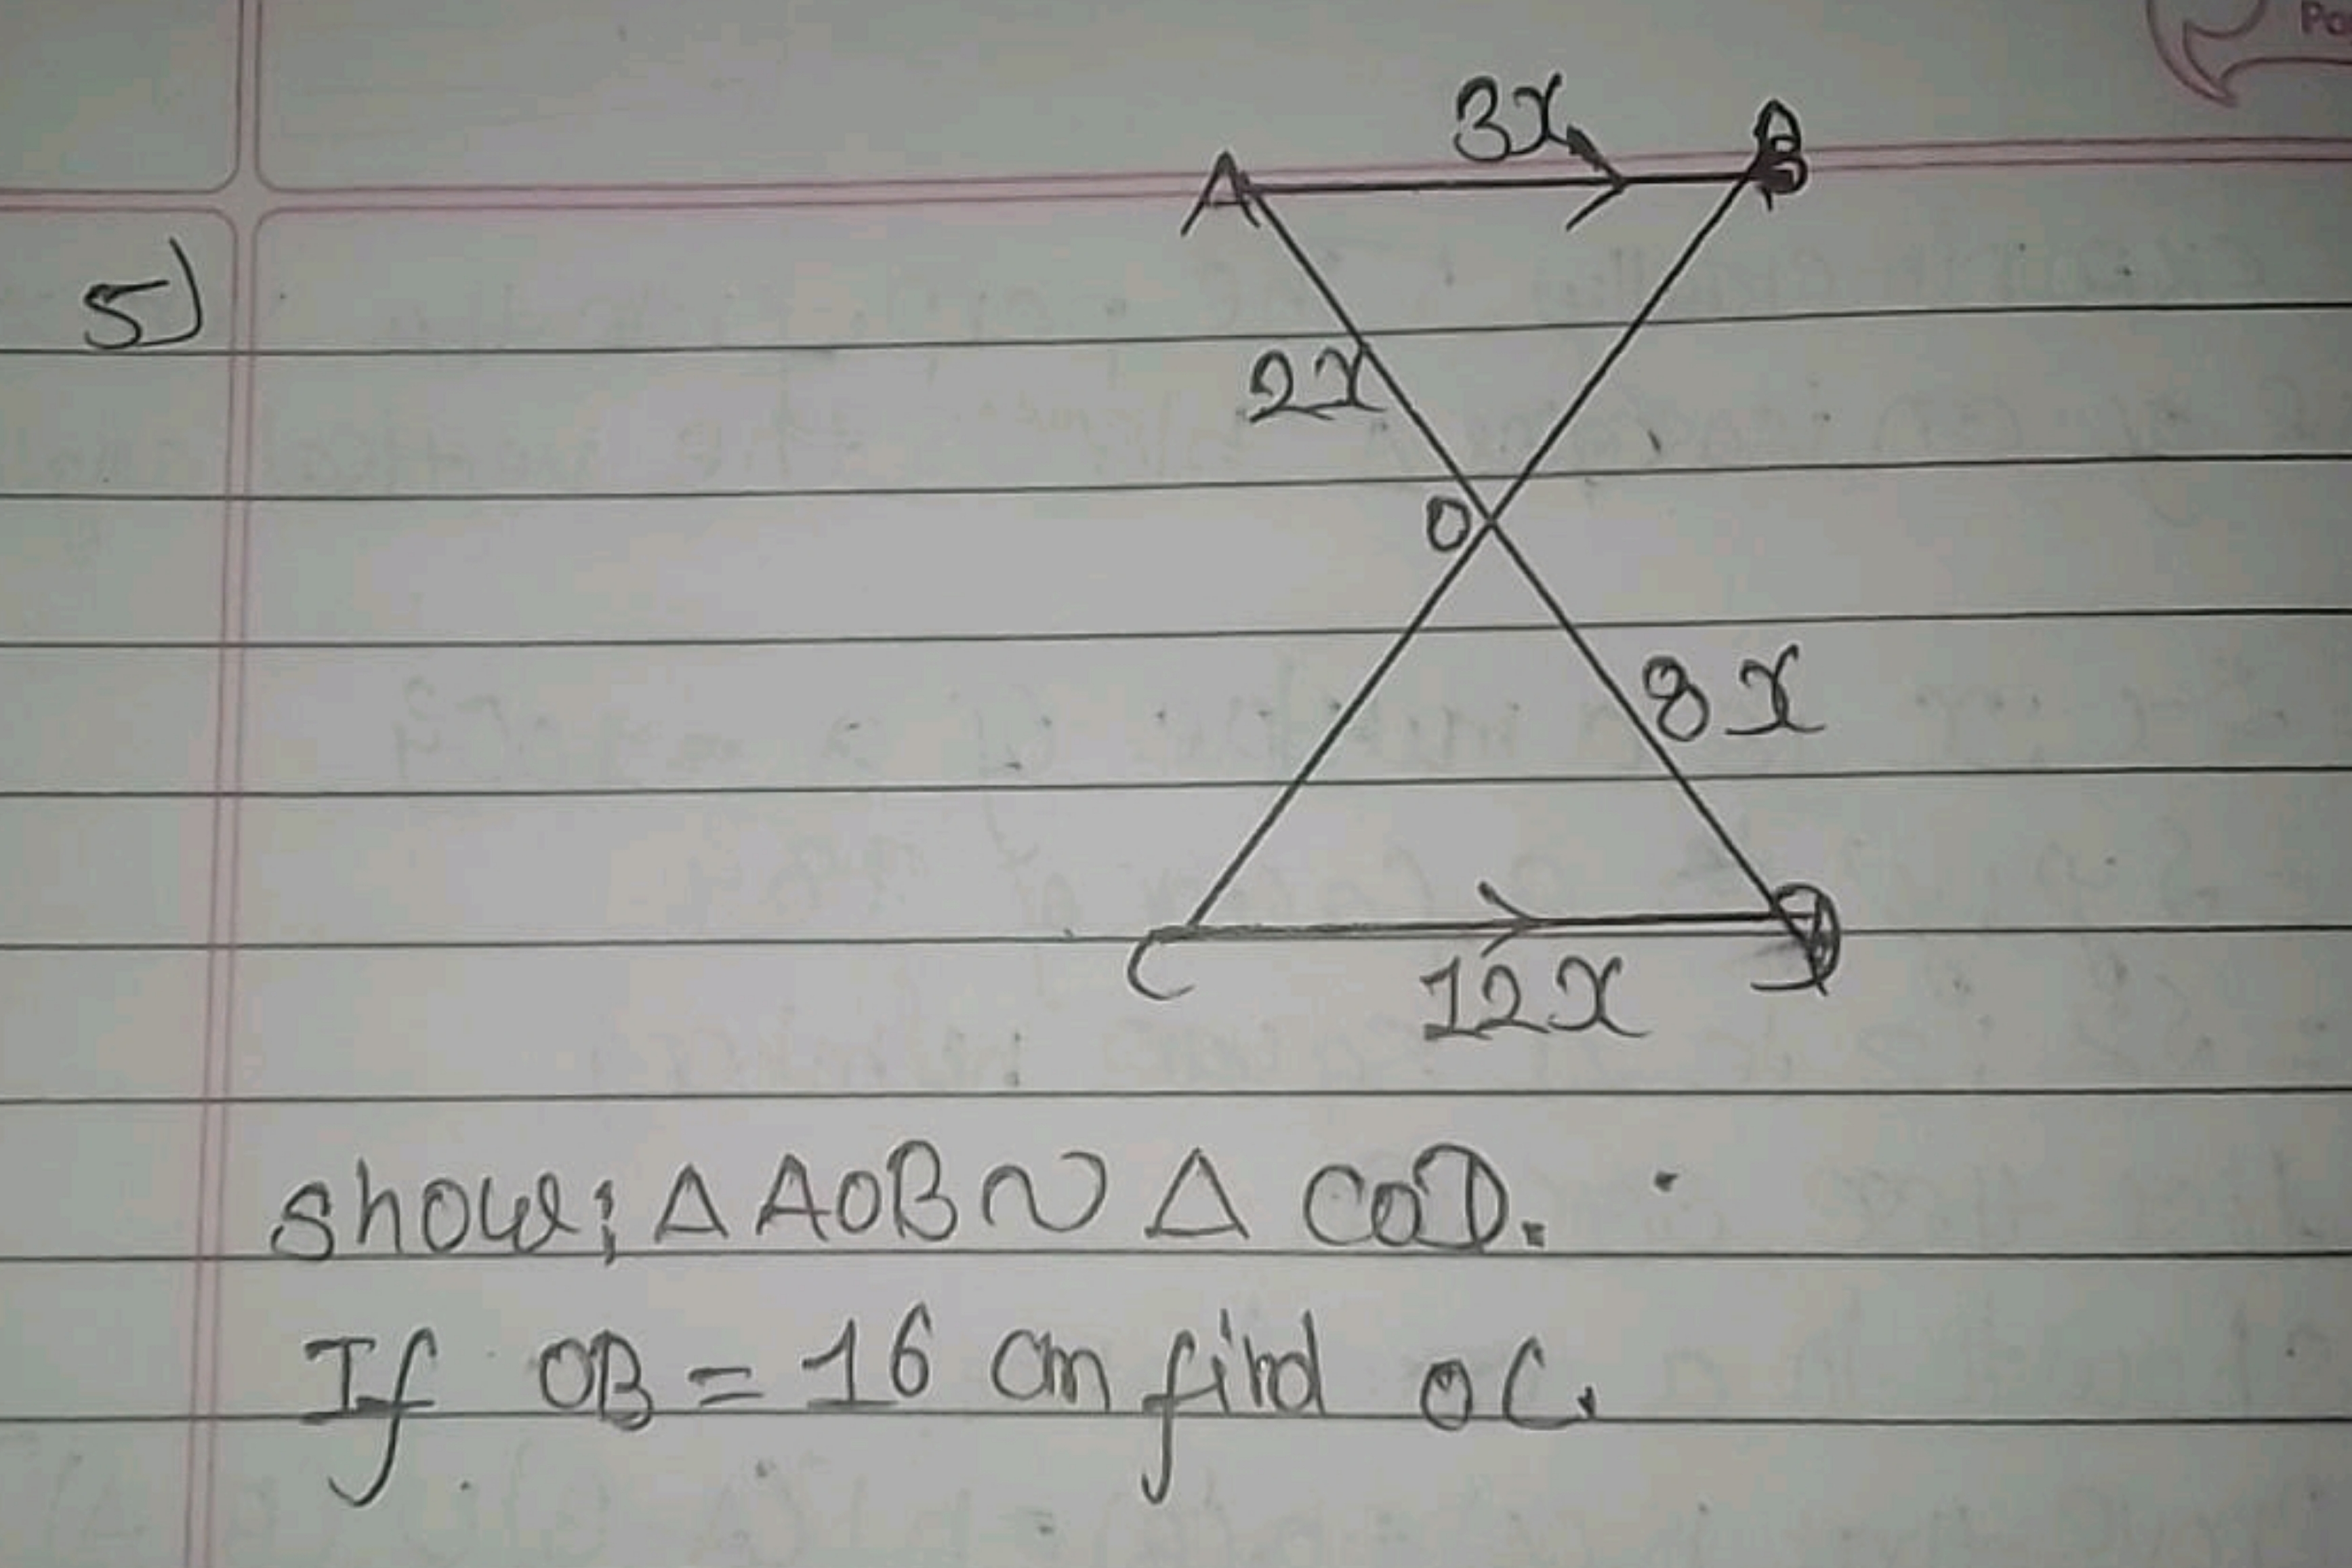 3x
A B
5)
2x
O
8x
C D
12x
show: Δ AOB ~ Δ COD.
If OB = 16 cm find OC.